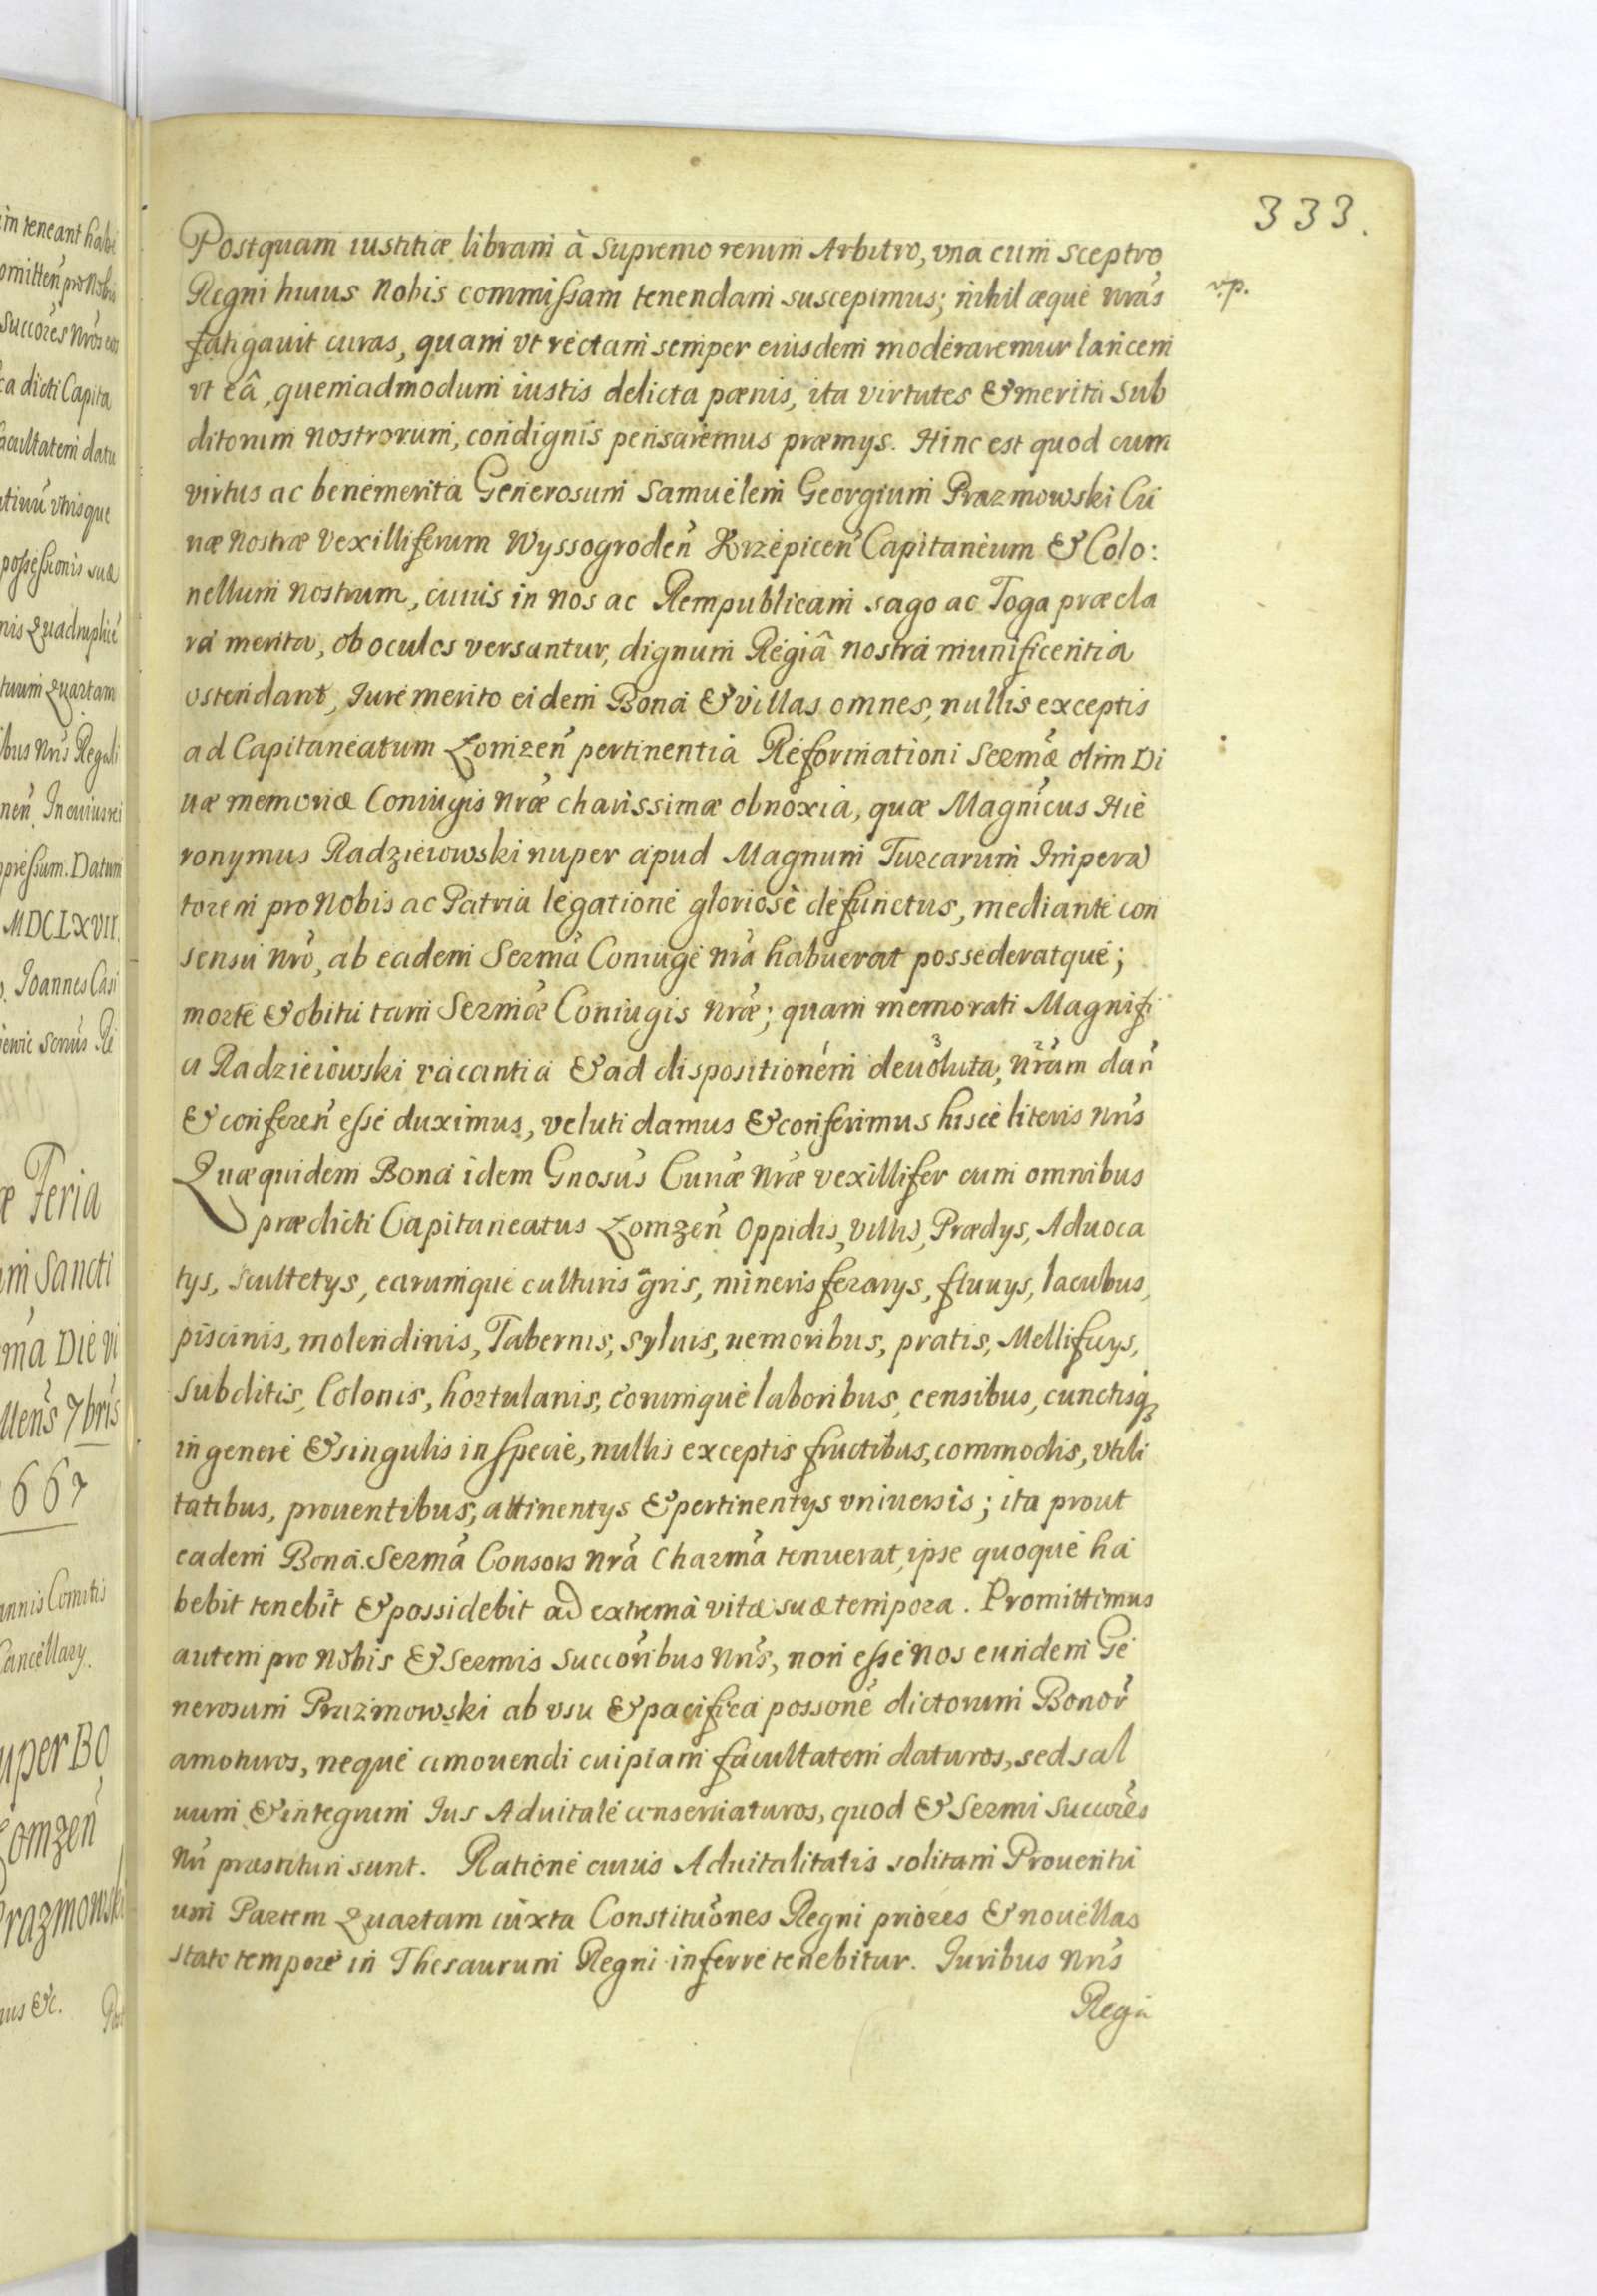 333.
Postquam iustitiæ libram à Supremo rerum Arbitro, vna cum Sceptro
Regni huius Nobis commissam tenendam suscepimus; nihil æque nrãs
vp.
fatigauit curas, quam vt rectam semper eiusdem moderaremur lancem
vt eâ, quemadmodum iustis delicta pænis, ita virtutes & merita Sub
ditorum nostrorum, condignis pensaremus præmys. Hinc est quod cum
virtus ac benemerita Generosum Samuelem Georgium Prazmowski Cu
riæ Nostræ Vexilliferum Wyssogroden̄ Krzepicen̄ Capitaneum & Colo:
nellum Nostrum, cuius in Nos ac Rempublicam sago ac Toga præcla
ra merita, ob oculos versantur, dignum Regiâ nostra munificentia
ostendant, Jure merito eidem Bona & villas omnes, nullis exceptis
ad Capitaneatum Łomzen̄ pertinentia Reformationi Serm̃æ olim Di
uæ memoriæ Coniugis nrãe charissimæ obnoxia, quæ Magnĩcus Hie
ronymus Radzieiowski nuper apud Magnum Turcarum Impera
torem pro Nobis ac Patria legatione gloriosè defunctus, mediante con
sensu nrõ, ab eadem Serm̃a Coniuge nrã habuerat possederatque;
morte & obitu tam Serm̃æ Coniugis nrãe; quam memorati Magnifi
ci Radzieiowski vacantia & ad dispositionem deuoluta, nrãm dan̄
& conferen̄ esse duximus, veluti damus & conferimus hisce literis nrĩs
Quæquidem Bona idem Gnosũs Curiæ Nrãe vexillifer cum omnibus
prædicti Capitaneatus Łomzen̄ Oppidis, Villis, Prædys, Aduoca
tys, Scultetys, earumque culturis ãgris, mineris ferarys, fluuys, lacubus,
piscinis, molendinis, Tabernis, syluis, nemoribus, pratis, Mellificys,
subditis, Colonis, hortulanis, eorumque laboribus, censibus, cunctisq
in genere & singulis in specie, nullis exceptis fructibus, commodis, vtili
tatibus, prouentibus, attinentys & pertinentys vniuersis; ita prout
eadem Bona Serm̃a Consors nrã Charm̃a tenuerat, ipse quoque ha
bebit tenebit & possidebit ad extrema vitæ suæ tempora. Promittimus
autem pro Nobis & Sermis Succorĩbus Nrĩs, non esse nos eundem Ge
nerosum Prazmowski ab vsu & pacifica possonẽ dictorum Bonor̃
amoturos, neque amouendi cuipiam facultatem daturos, sed sal
uum & integrum Jus Aduitale conseruaturos, quod & Sermi Succorẽs
Nrĩ præstituri sunt. Ratione cuius Aduitalitatis solitam Prouentu
um Partem Quartam iuxta Constitutõnes Regni priores & nouellas
stato tempore in Thesaurum Regni inferre tenebitur. Juribus Nrĩs
Rega